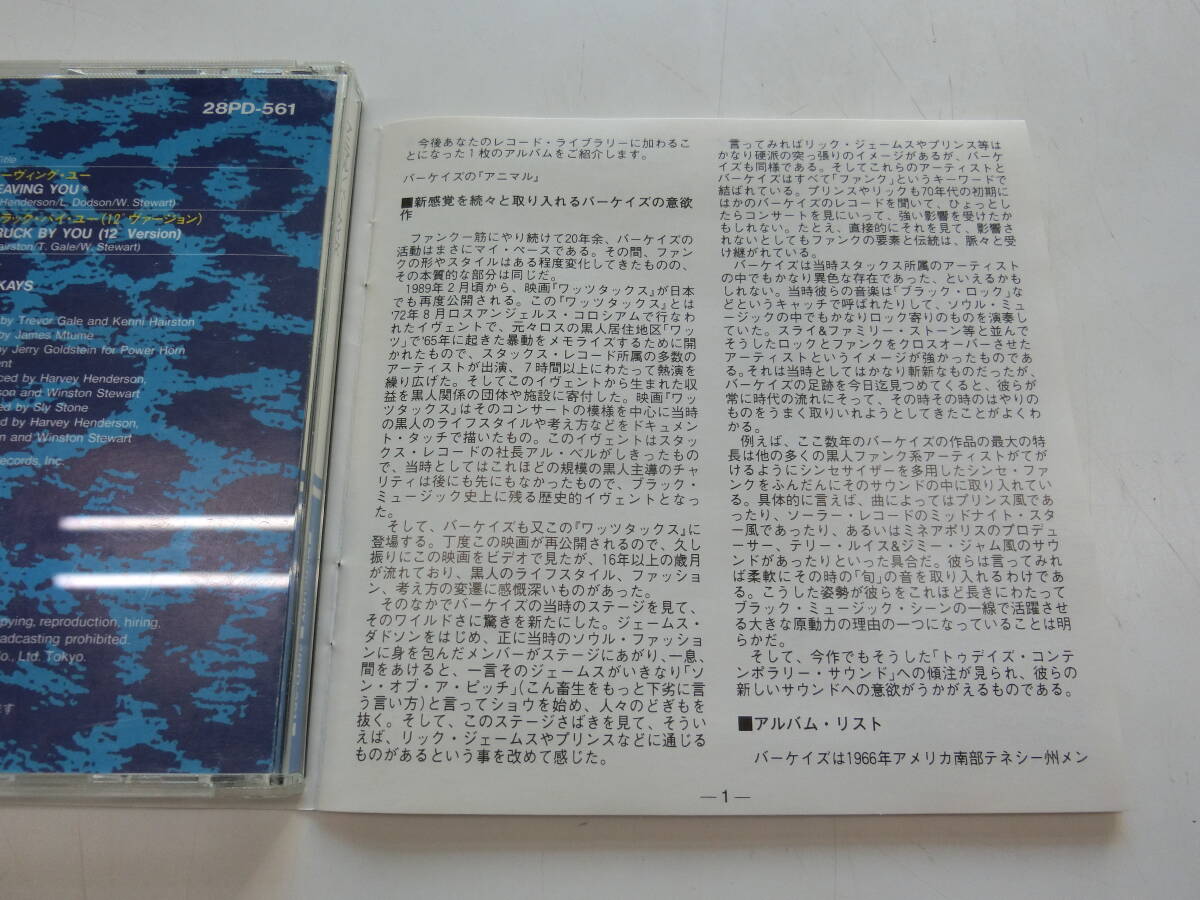 28PD-561
Title
ーヴィング・ユー
EAVING YOU*
Henderson/L. Dodson/W. Stewart)
ラック・バイ・ユー(12" ヴァージョン)
RUCK BY YOU (12" Version)
airston/T. Gale/W. Stewart)
KAYS
by Trevor Gale and Kenni Hairston
by James Mtume
by Jerry Goldstein for Power Horn
ent
ced by Harvey Henderson,
son and Winston Stewart
ed by Sly Stone
ed by Harvey Henderson,
n and Winston Stewart
ecords, Inc.
pying, reproduction, hiring,
adcasting prohibited.
Co., Ltd. Tokyo.
す
今後あなたのレコード・ライブラリーに加わるこ
とになった1枚のアルバムをご紹介します。
バーケイズの「アニマル」
■新感覚を続々と取り入れるバーケイズの意欲
作
ファンク一筋にやり続けて20年余、バーケイズの
活動はまさにマイ・ペースである。その間、ファン
クの形やスタイルはある程度変化してきたものの、
その本質的な部分は同じだ。
1989年2月頃から、映画『ワッツタックス』が日本
でも再度公開される。この『ワッツタックス』とは
'72年8月ロスアンジェルス・コロシアムで行なわ
れたイヴェントで、元々ロスの黒人居住地区「ワッ
ツ」で'65年に起きた暴動をメモライズするために開
かれたもので、スタックス・レコード所属の多数の
アーティストが出演、7時間以上にわたって熱演を
繰り広げた。そしてこのイヴェントから生まれた収
益を黒人関係の団体や施設に寄付した。映画『ワッ
ツタックス』はそのコンサートの模様を中心に当時
の黒人のライフスタイルや考え方などをドキュメン
ト・タッチで描いたもの。このイヴェントはスタッ
クス・レコードの社長アル・ベルがしきったもの
で、当時としてはこれほどの規模の黒人主導のチャ
リティは後にも先にもなかったもので、ブラック・
ミュージック史上に残る歴史的イヴェントとなっ
た。
そして、バーケイズも又この『ワッツタックス』に
登場する。丁度この映画が再公開されるので、久し
振りにこの映画をビデオで見たが、16年以上の歳月
が流れており、黒人のライフスタイル、ファッショ
ン、考え方の変遷に感慨深いものがあった。
そのなかでバーケイズの当時のステージを見て、
そのワイルドさに驚きを新たにした。ジェームス・
ダドソンをはじめ、正に当時のソウル・ファッショ
ンに身を包んだメンバーがステージにあがり、一息、
間をあけると、一言そのジェームスがいきなり「ソ
ン・オブ・ア・ビッチ」(こん畜生をもっと下劣に言
う言い方)と言ってショウを始め、人々のどぎもを
抜く。そして、このステージさばきを見て、そうい
えば、リック・ジェームスやプリンスなどに通じる
ものがあるという事を改めて感じた。
言ってみればリック・ジェームスやプリンス等は
かなり硬派の突っ張りのイメージがあるが、バーケ
イズも同様である。そしてこれらのアーティストと
バーケイズはすべて「ファンク」というキーワードで
結ばれている。プリンスやリックも70年代の初期に
はかのバーケイズのレコードを聞いて、ひょっとし
たらコンサートを見にいって、強い影響を受けたか
もしれない。たとえ、直接的にそれを見て、影響さ
れないとしてもファンクの要素と伝統は、脈々と受
け継がれている。
バーケイズは当時スタックス所属のアーティスト
の中でもかなり異色な存在であった、といえるかも
しれない。当時彼らの音楽は「ブラック・ロック」な
どというキャッチで呼ばれたりして、ソウル・ミュ
ージックの中でもかなりロック寄りのものを演奏し
ていた。スライ&ファミリー・ストーン等と並んで
そうしたロックとファンクをクロスオーバーさせた
アーティストというイメージが強かったものであ
る。それは当時としてはかなり斬新なものだったが、
バーケイズの足跡を今日迄見つめてくると、彼らが
常に時代の流れにそって、その時その時のはやりの
ものをうまく取りいれようとしてきたことがよくわ
かる。
例えば、ここ数年のバーケイズの作品の最大の特
長は他の多くの黒人ファンク系アーティストがてが
けるようにシンセサイザーを多用したシンセ・ファ
ンクをふんだんにそのサウンドの中に取り入れてい
る。具体的に言えば、曲によってはプリンス風であ
ったり、ソーラー・レコードのミッドナイト・スタ
ー風であったり、あるいはミネアポリスのプロデュ
ーサー、テリー・ルイス&ジミー・ジャム風のサウ
ンドがあったりといった具合だ。彼らは言ってみれ
ば柔軟にその時の「旬」の音を取り入れるわけであ
る。こうした姿勢が彼らをこれほど長きにわたって
ブラック・ミュージック・シーンの一線で活躍させ
る大きな原動力の理由の一つになっていることは明
らかだ。
そして、今作でもそうした「トゥデイズ・コンテ
ンポラリー・サウンド」への傾注が見られ、彼らの
新しいサウンドへの意欲がうかがえるものである。
■アルバム・リスト
バーケイズは1966年アメリカ南部テネシー州メン
—1—